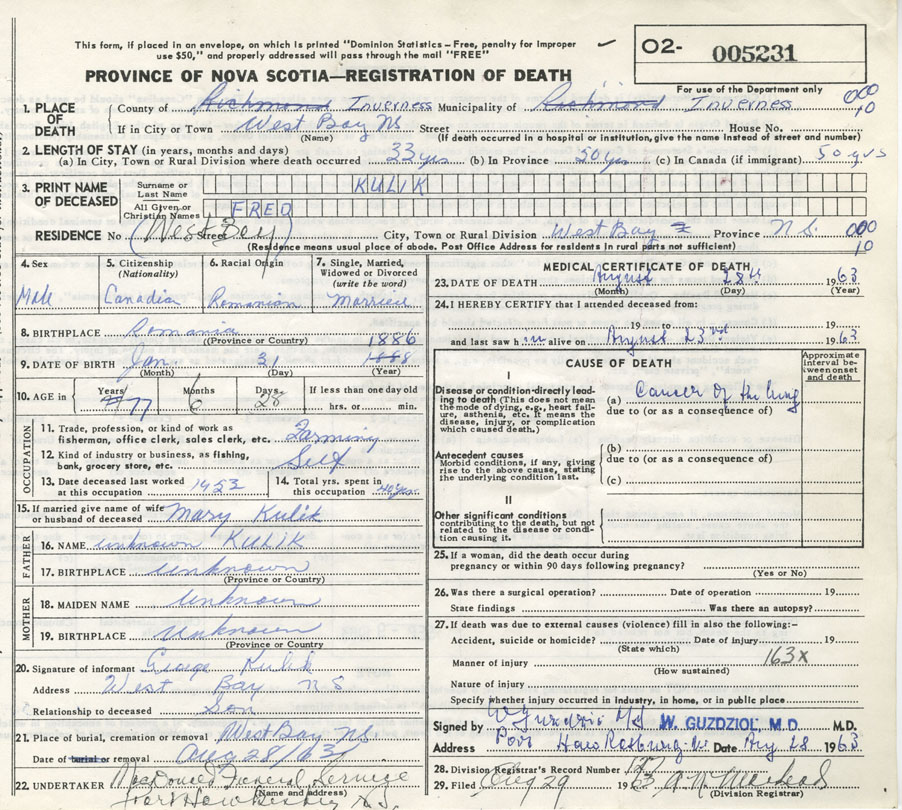 This form, if placed in an envelope, on which is printed "Dominion Statistics – Free, penalty for improper
use $50," and properly addressed will pass through the mail "FREE"
O2- 005231
PROVINCE OF NOVA SCOTIA—REGISTRATION OF DEATH
For use of the Department only
1. PLACE OF DEATH County of Richmond Inverness Municipality of Richmond Inverness 000 10
If in City or Town West Bay NS Street House No.
(Name) (If death occurred in a hospital or institution, give the name instead of street and number)
2. LENGTH OF STAY (in years, months and days)
(a) In City, Town or Rural Division where death occurred 33 yrs (b) In Province 50 yrs (c) In Canada (if immigrant) 50 yrs
3. PRINT NAME OF DECEASED Surname or Last Name KULIK
All Given or Christian Names FRED
RESIDENCE No (West Bay) Street City, Town or Rural Division West Bay Province N.S. 000 10
(Residence means usual place of abode. Post Office Address for residents in rural parts not sufficient)
4. Sex Male
5. Citizenship (Nationality) Canadian
6. Racial Origin Romanian
7. Single, Married, Widowed or Divorced (write the word) Married
8. BIRTHPLACE Romania
(Province or Country)
1886
9. DATE OF BIRTH Jan 31 1888
(Month) (Day) (Year)
10. AGE in Years 77 Months 6 Days 28 If less than one day old hrs. or min.
OCCUPATION
11. Trade, profession, or kind of work as
fisherman, office clerk, sales clerk, etc. Farming
12. Kind of industry or business, as fishing,
bank, grocery store, etc. Self
13. Date deceased last worked at this occupation 1953
14. Total yrs. spent in this occupation 40 yrs
15. If married give name of wife or husband of deceased Mary Kulik
FATHER
16. NAME unknown KULIK
17. BIRTHPLACE unknown
(Province or Country)
MOTHER
18. MAIDEN NAME Unknown
19. BIRTHPLACE Unknown
(Province or Country)
20. Signature of informant George Kulik
Address West Bay NS
Relationship to deceased Son
21. Place of burial, cremation or removal West Bay NS
Date of burial or removal Aug 28/63
22. UNDERTAKER MacDonald Funeral Service
(Name and address)
Port Hawkesbury N.S.
MEDICAL CERTIFICATE OF DEATH
23. DATE OF DEATH August 28th 1963
(Month) (Day) (Year)
24. I HEREBY CERTIFY that I attended deceased from:
19 to 19
and last saw h im alive on August 23rd 1963
CAUSE OF DEATH
Approximate interval between onset and death
I
Disease or condition directly leading to death (This does not mean
the mode of dying, e.g., heart failure, asthenia, etc. It means the
disease, injury, or complication
which caused death.)
(a) Cancer of the lung
due to (or as a consequence of)
Antecedent causes
Morbid conditions, if any, giving
rise to the above cause, stating
the underlying condition last.
(b)
due to (or as a consequence of)
(c)
II
Other significant conditions
contributing to the death, but not
related to the disease or condition causing it.
25. If a woman, did the death occur during
pregnancy or within 90 days following pregnancy?
(Yes or No)
26. Was there a surgical operation? Date of operation 19
State findings Was there an autopsy?
27. If death was due to external causes (violence) fill in also the following:-
Accident, suicide or homicide? Date of injury 19
(State which)
163X
Manner of injury
(How sustained)
Nature of injury
Specify whether injury occurred in industry, in home, or in public place
Signed by W Guzdziol Md W. GUZDZIOL, M.D. M.D.
Address Port Hawkesbury Date Aug 28 1963
28. Division Registrar's Record Number
29. Filed Aug 29 1963
(Division Registrar)